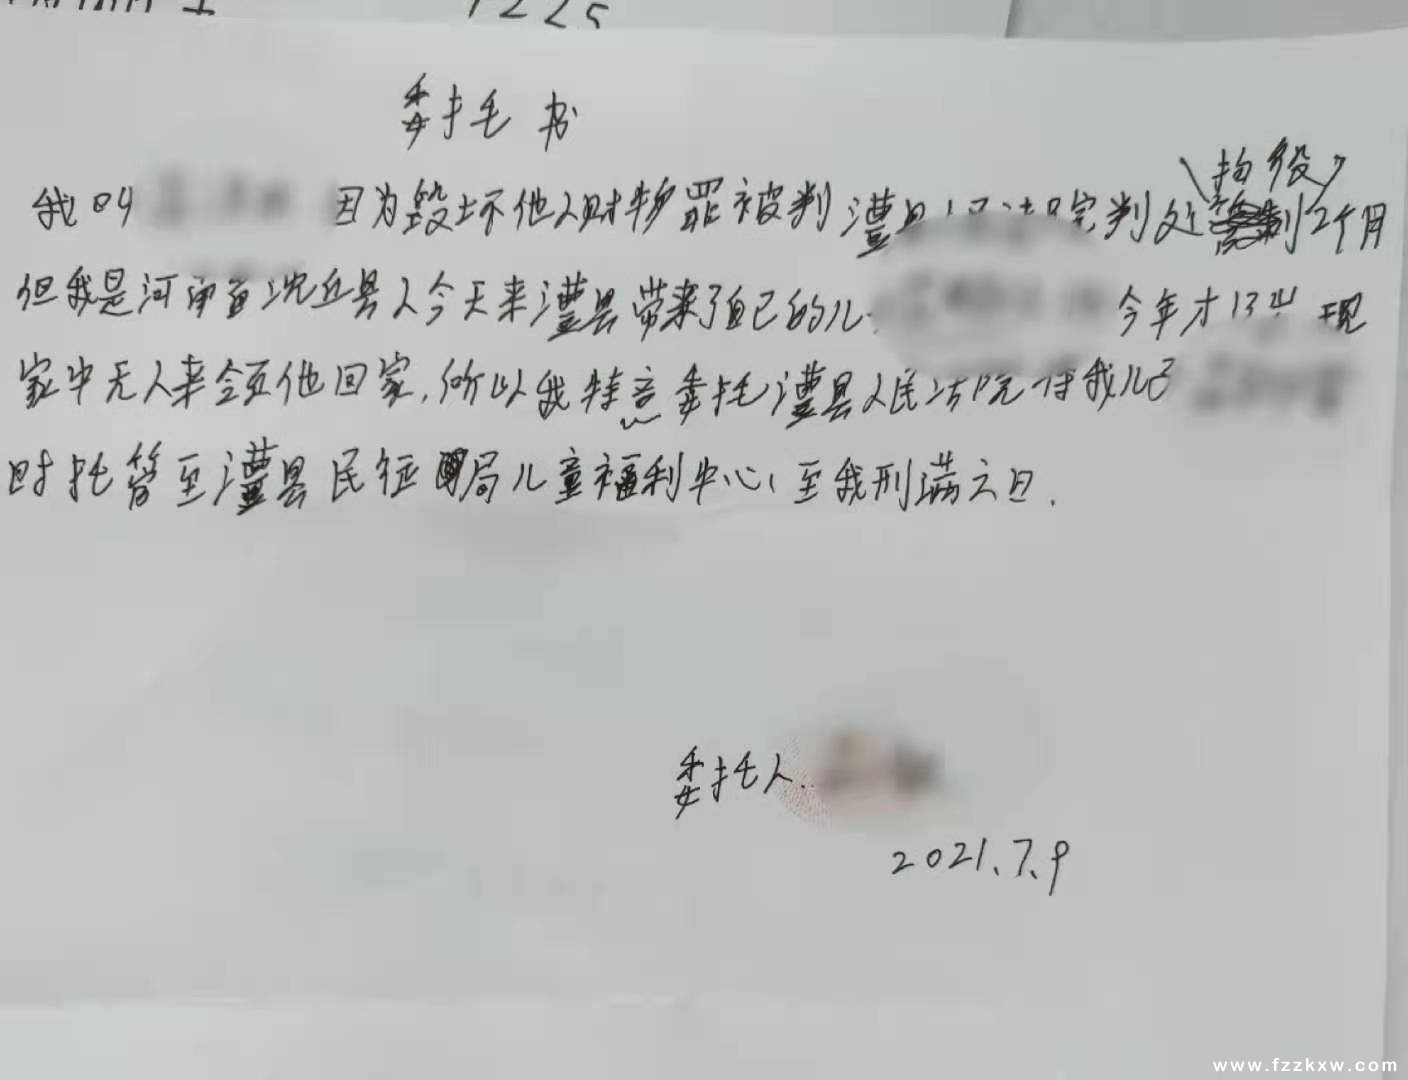 1225
委托书
我叫 因为毁坏他人财物罪被判澧县人民法院判处拘役2个月
但我是河南省沈丘县人今天来澧县带来了自己的儿 今年才13岁 现
家中无人来领他回家,所以我特意委托澧县人民法院将我儿子
时托管至澧县民政局儿童福利中心,至我刑满之日.
委托人.
2021.7.9
www.fzzkxw.com